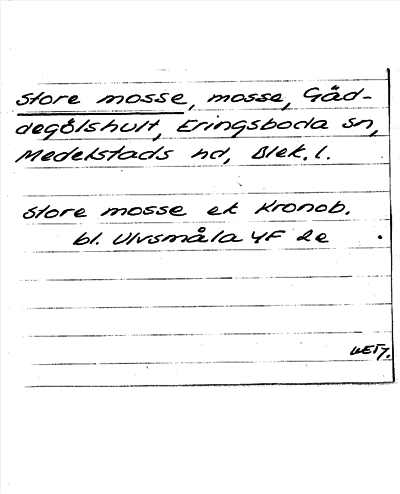 Store mosse, mosse, Gäd-
degölshult, Eringsboda sn,
Medelstads hd, Blek. l.
Store mosse ek Kronob.
bl. Ulvsmåla 4F 2e